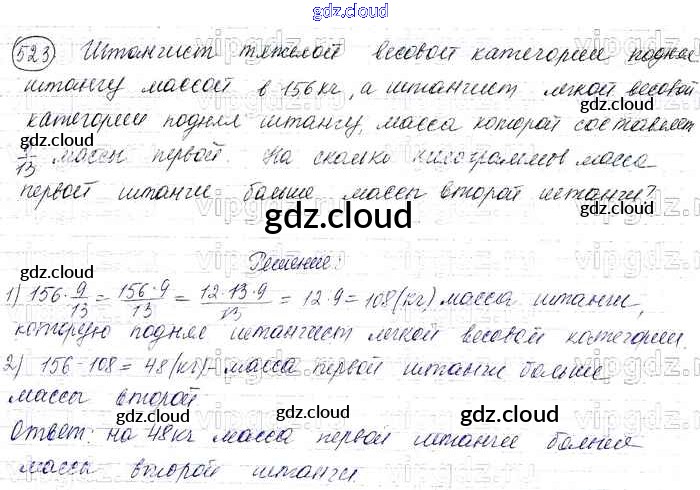 gdz.cloud
523 Штангист тяжелой весовой категории поднял
штангу массой в 156 кг, а штангист легкой весовой
gdz.cloud
gdz.cloud
категории поднял штангу, масса которой составляет
gdz.cloud
9/13 массы первой. На сколько килограммов масса
первой штанги больше массы второй штанги?
gdz.cloud
gdz.cloud
gdz.cloud
Решение:
gdz.cloud
1) 156 · 9/13 = 156 · 9/13 = 12 · 13 · 9/13 = 12 · 9 = 108 (кг) масса штанги,
которую поднял штангист легкой весовой категории.
2) 156 - 108 = 48 (кг) - масса первой штанги больше
массы второй
gdz.cloud
gdz.cloud
Ответ: на 48 кг масса первой штанги больше
массы второй штанги.
gdz.cloud